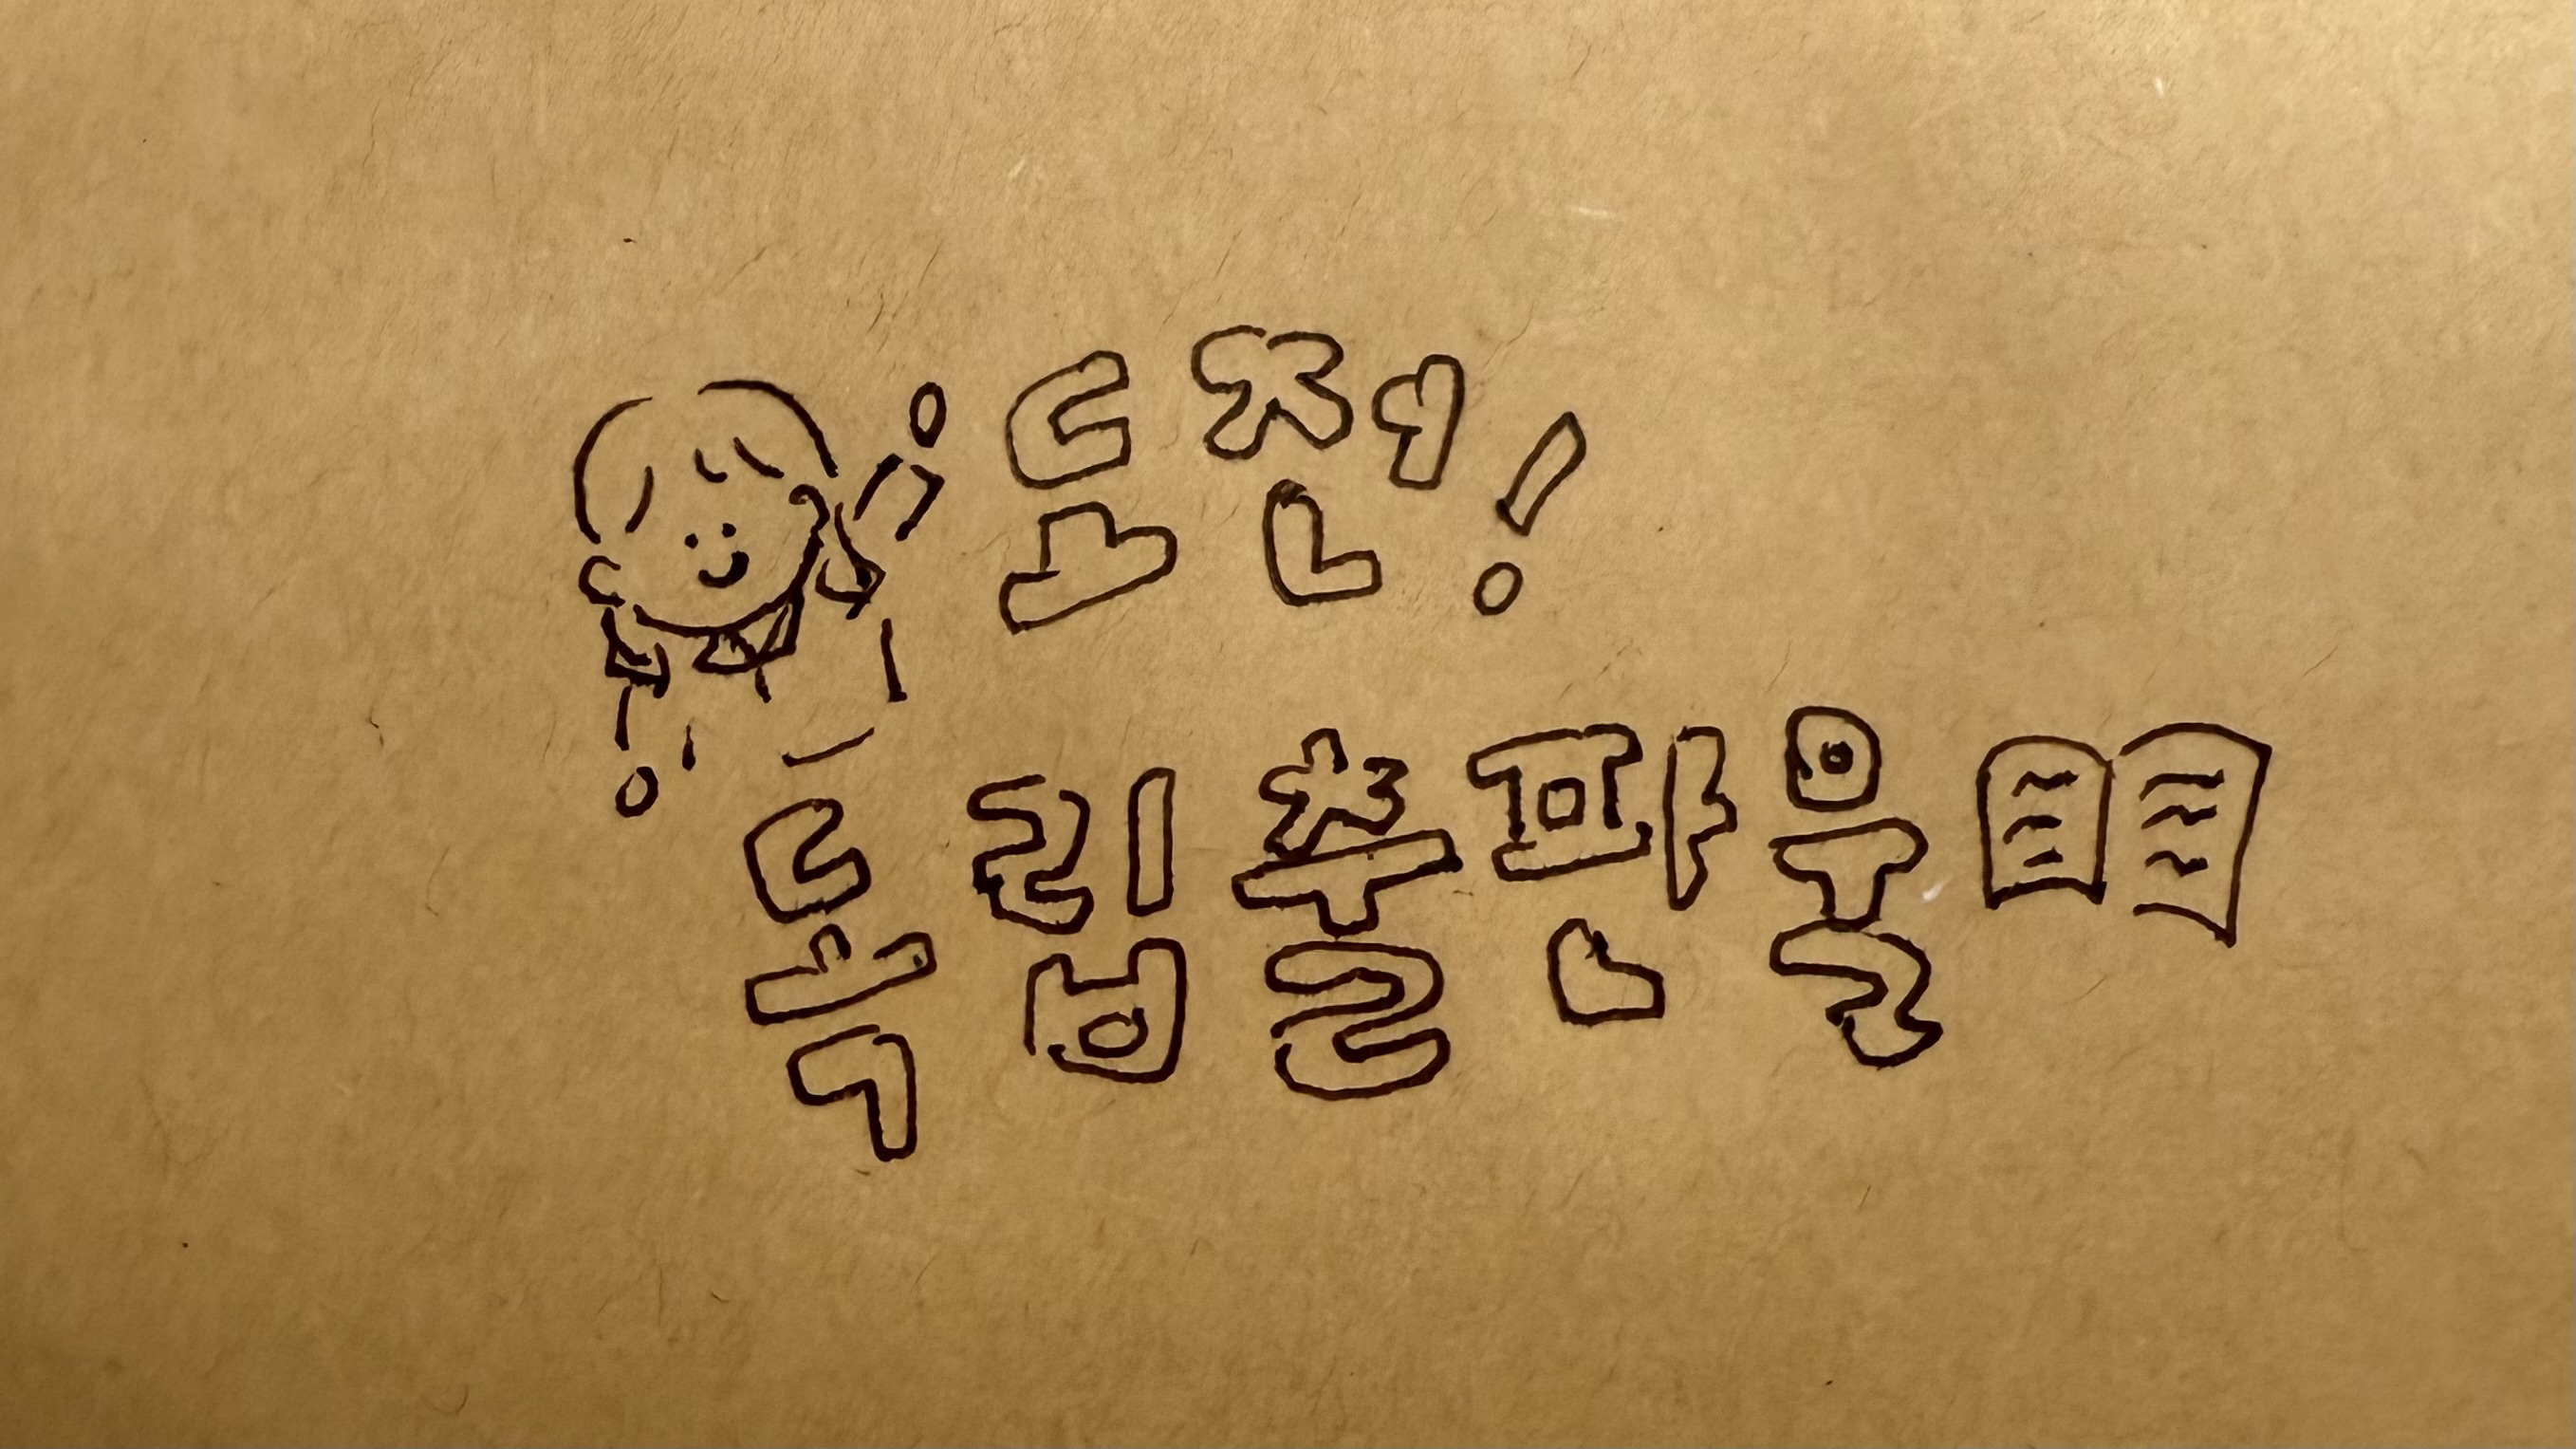 도전!
독립출판물